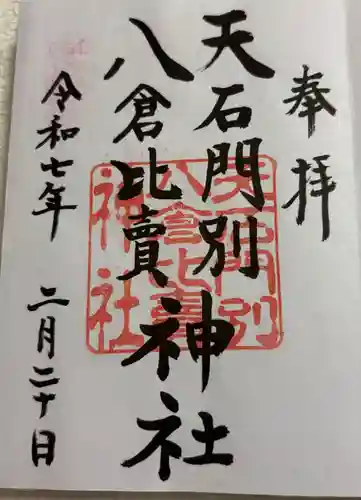 奉拝
天石門別
八倉比賣
神社
令和七年 二月二十日
天石門別
八倉比賣
神社